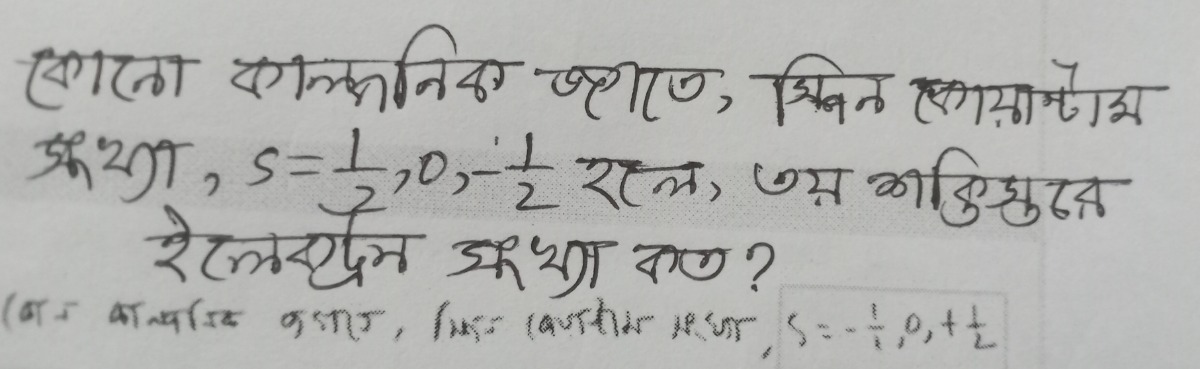 কোনো কাল্পনিক জগতে, স্পিন কোয়ান্টাম
সংখ্যা, S = 1/2, 0, -1/2 হলে, ৩য় শক্তিস্তরে
ইলেকট্রন সংখ্যা কত?
কাল্পনিক জগতে, কোয়ান্টাম সংখ্যা, S = - 1/2, 0, + 1/2